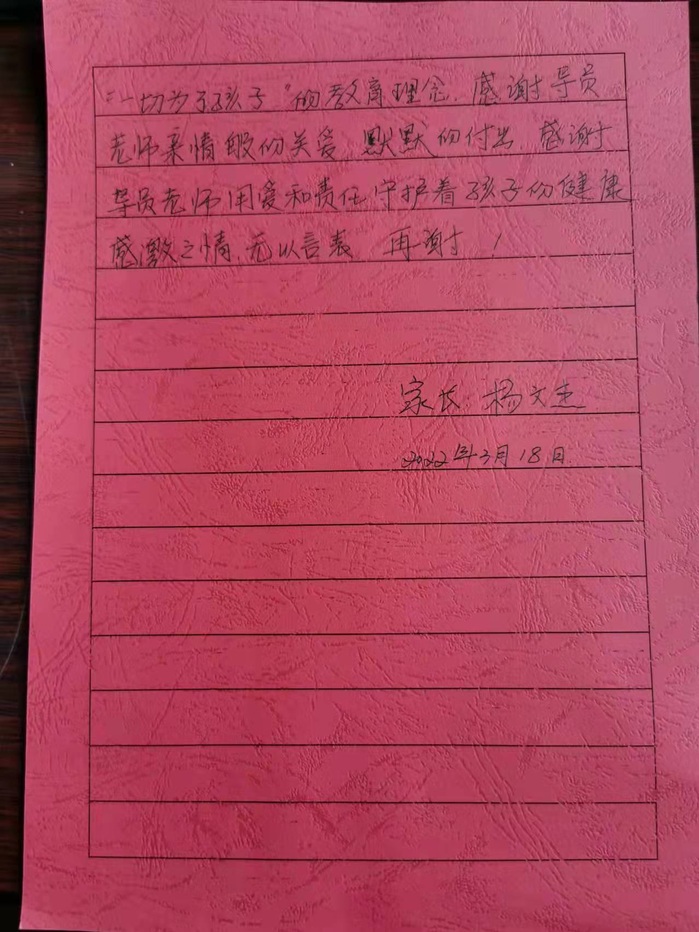 “一切为了孩子”的教育理念.感谢导员
老师亲情般的关爱,默默的付出,感谢
导员老师用爱和责任守护着孩子的健康
感激之情,无以言表 再谢!
家长:杨文杰
2022年3月18日